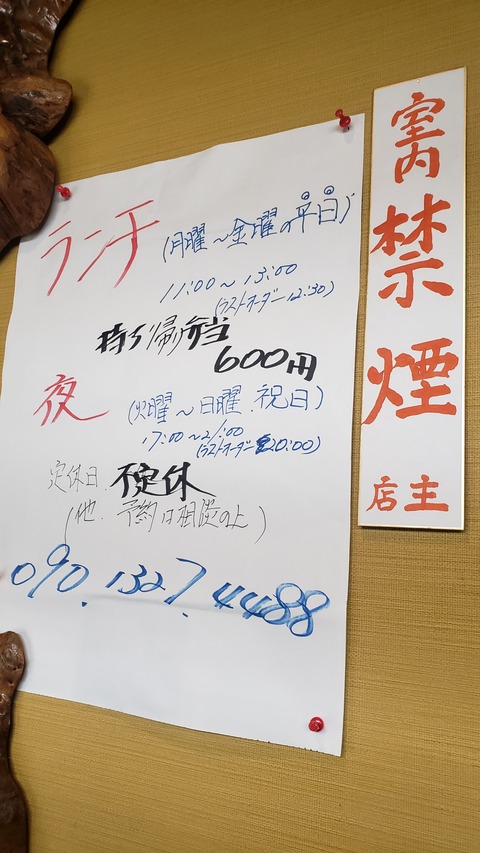 ランチ (月曜〜金曜の平日)
11:00〜13:00
(ラストオーダー12:30)
持ち帰り弁当
600円
夜 (火曜〜日曜.祝日)
17:00〜21:00
(ラストオーダー20:00)
定休日 不定休
(他.予約は相談の上)
090.1327.4488
室内
禁
煙
店主